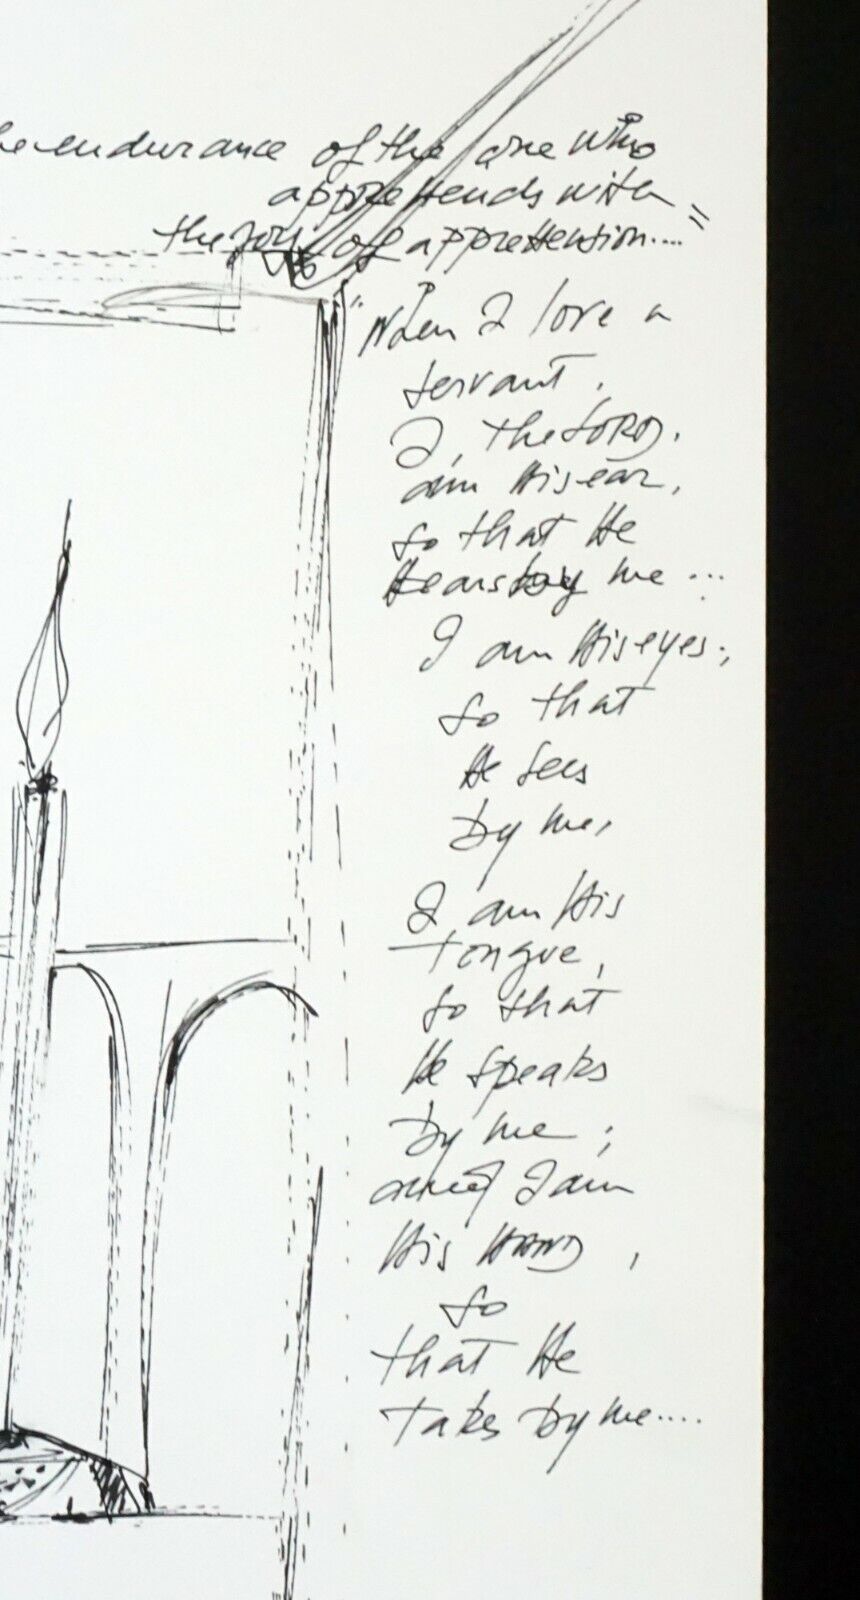 he endurance of the one who
apprehends with =
the joy of apprehension....
"When I love a
servant,
I, the LORD,
am His ear,
so that He
Hears by me...
I am His eyes,
so that
He sees
by me,
I am His
tongue,
so that
He speaks
by me;
and I am
His HAND,
so
that He
takes by me....